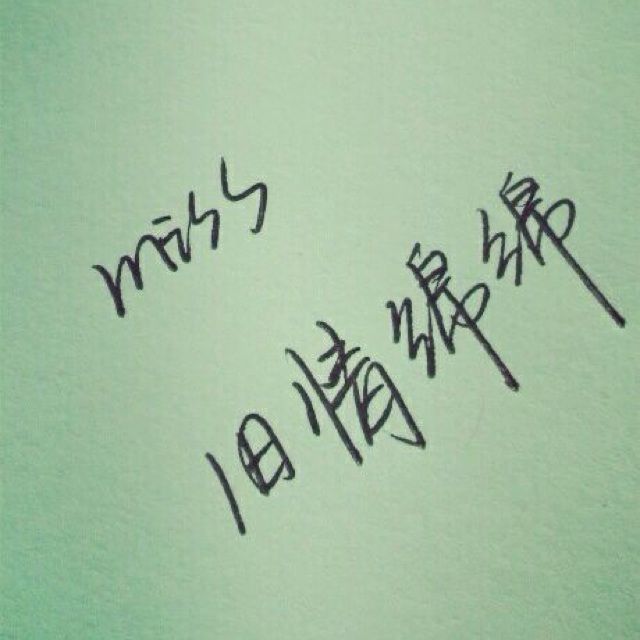 miss
旧情绵绵